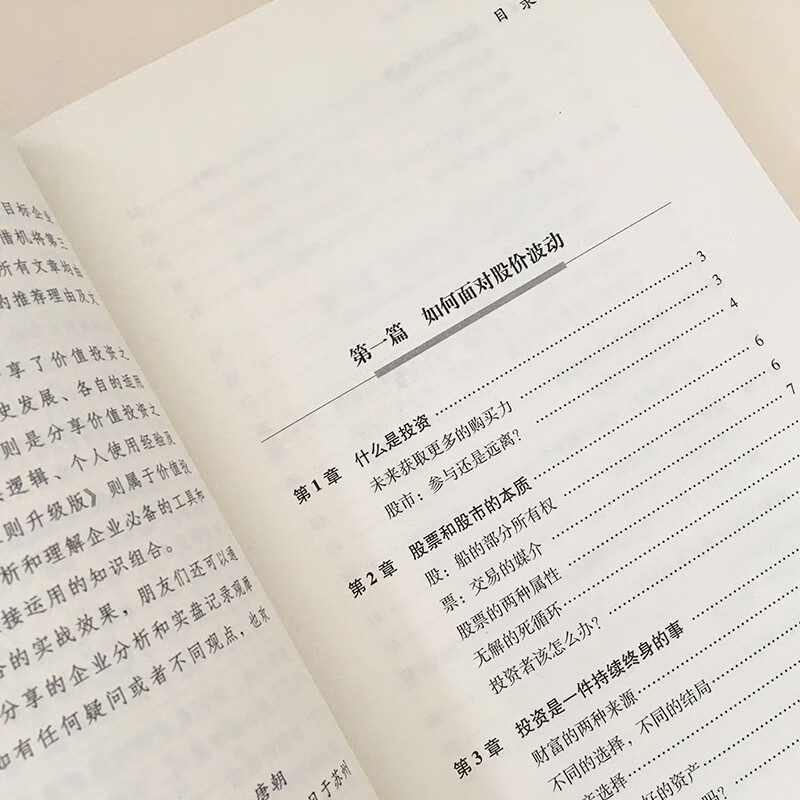 目标企业
借机将第三
所有文章均由
的推荐理由及文
享了价值投资之
史发展、各自的适用
则是分享价值投资之
逻辑、个人使用经验及
则升级版》则属于价值投
析和理解企业必备的工具和
接运用的知识组合。
的实战效果，朋友们还可以通
分享的企业分析和实盘记录观摩
如有任何疑问或者不同观点，也欢
唐朝
日于苏州
目录
第一篇 如何面对股价波动
第1章 什么是投资 3
未来获取更多的购买力 3
股市：参与还是远离？ 4
第2章 股票和股市的本质 6
股：船的部分所有权 6
票：交易的媒介 7
股票的两种属性
无解的死循环
投资者该怎么办？
第3章 投资是一件持续终身的事
财富的两种来源
不同的选择，不同的结局
产选择
好的资产
吗？